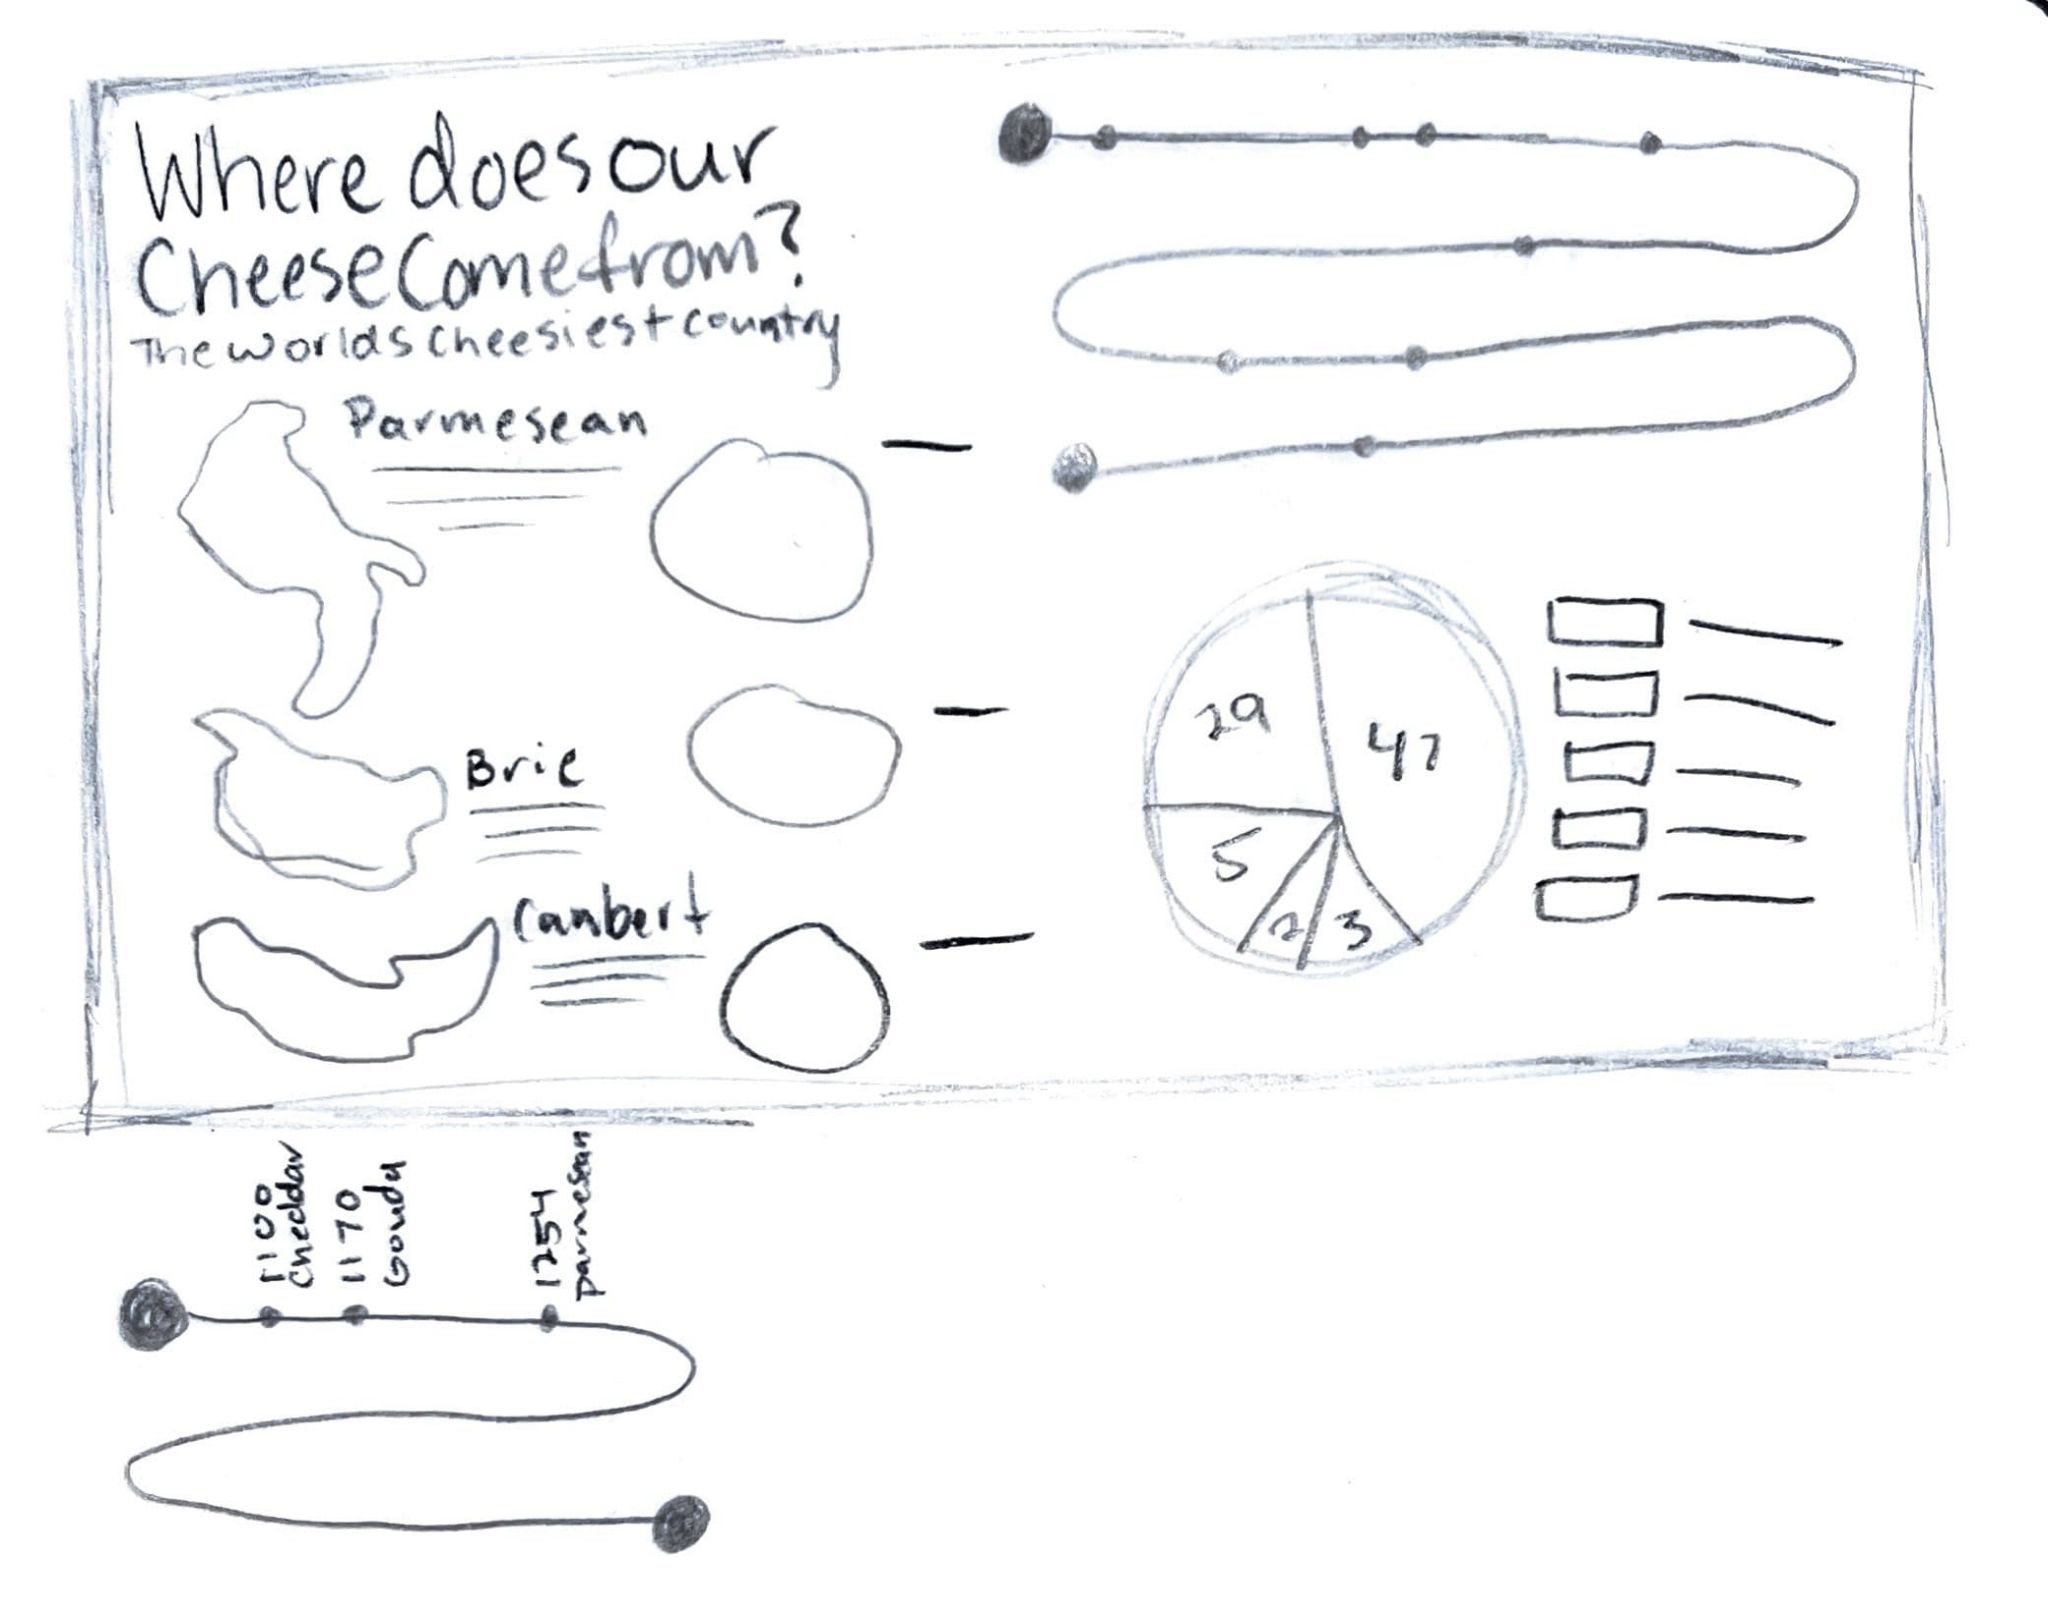 Where does our
Cheese Come from?
The worlds cheesiest country
Parmesean
Brie
Cambert
29
47
5
2
3
1100
Cheddar
1170
Gouda
1254
parmesean